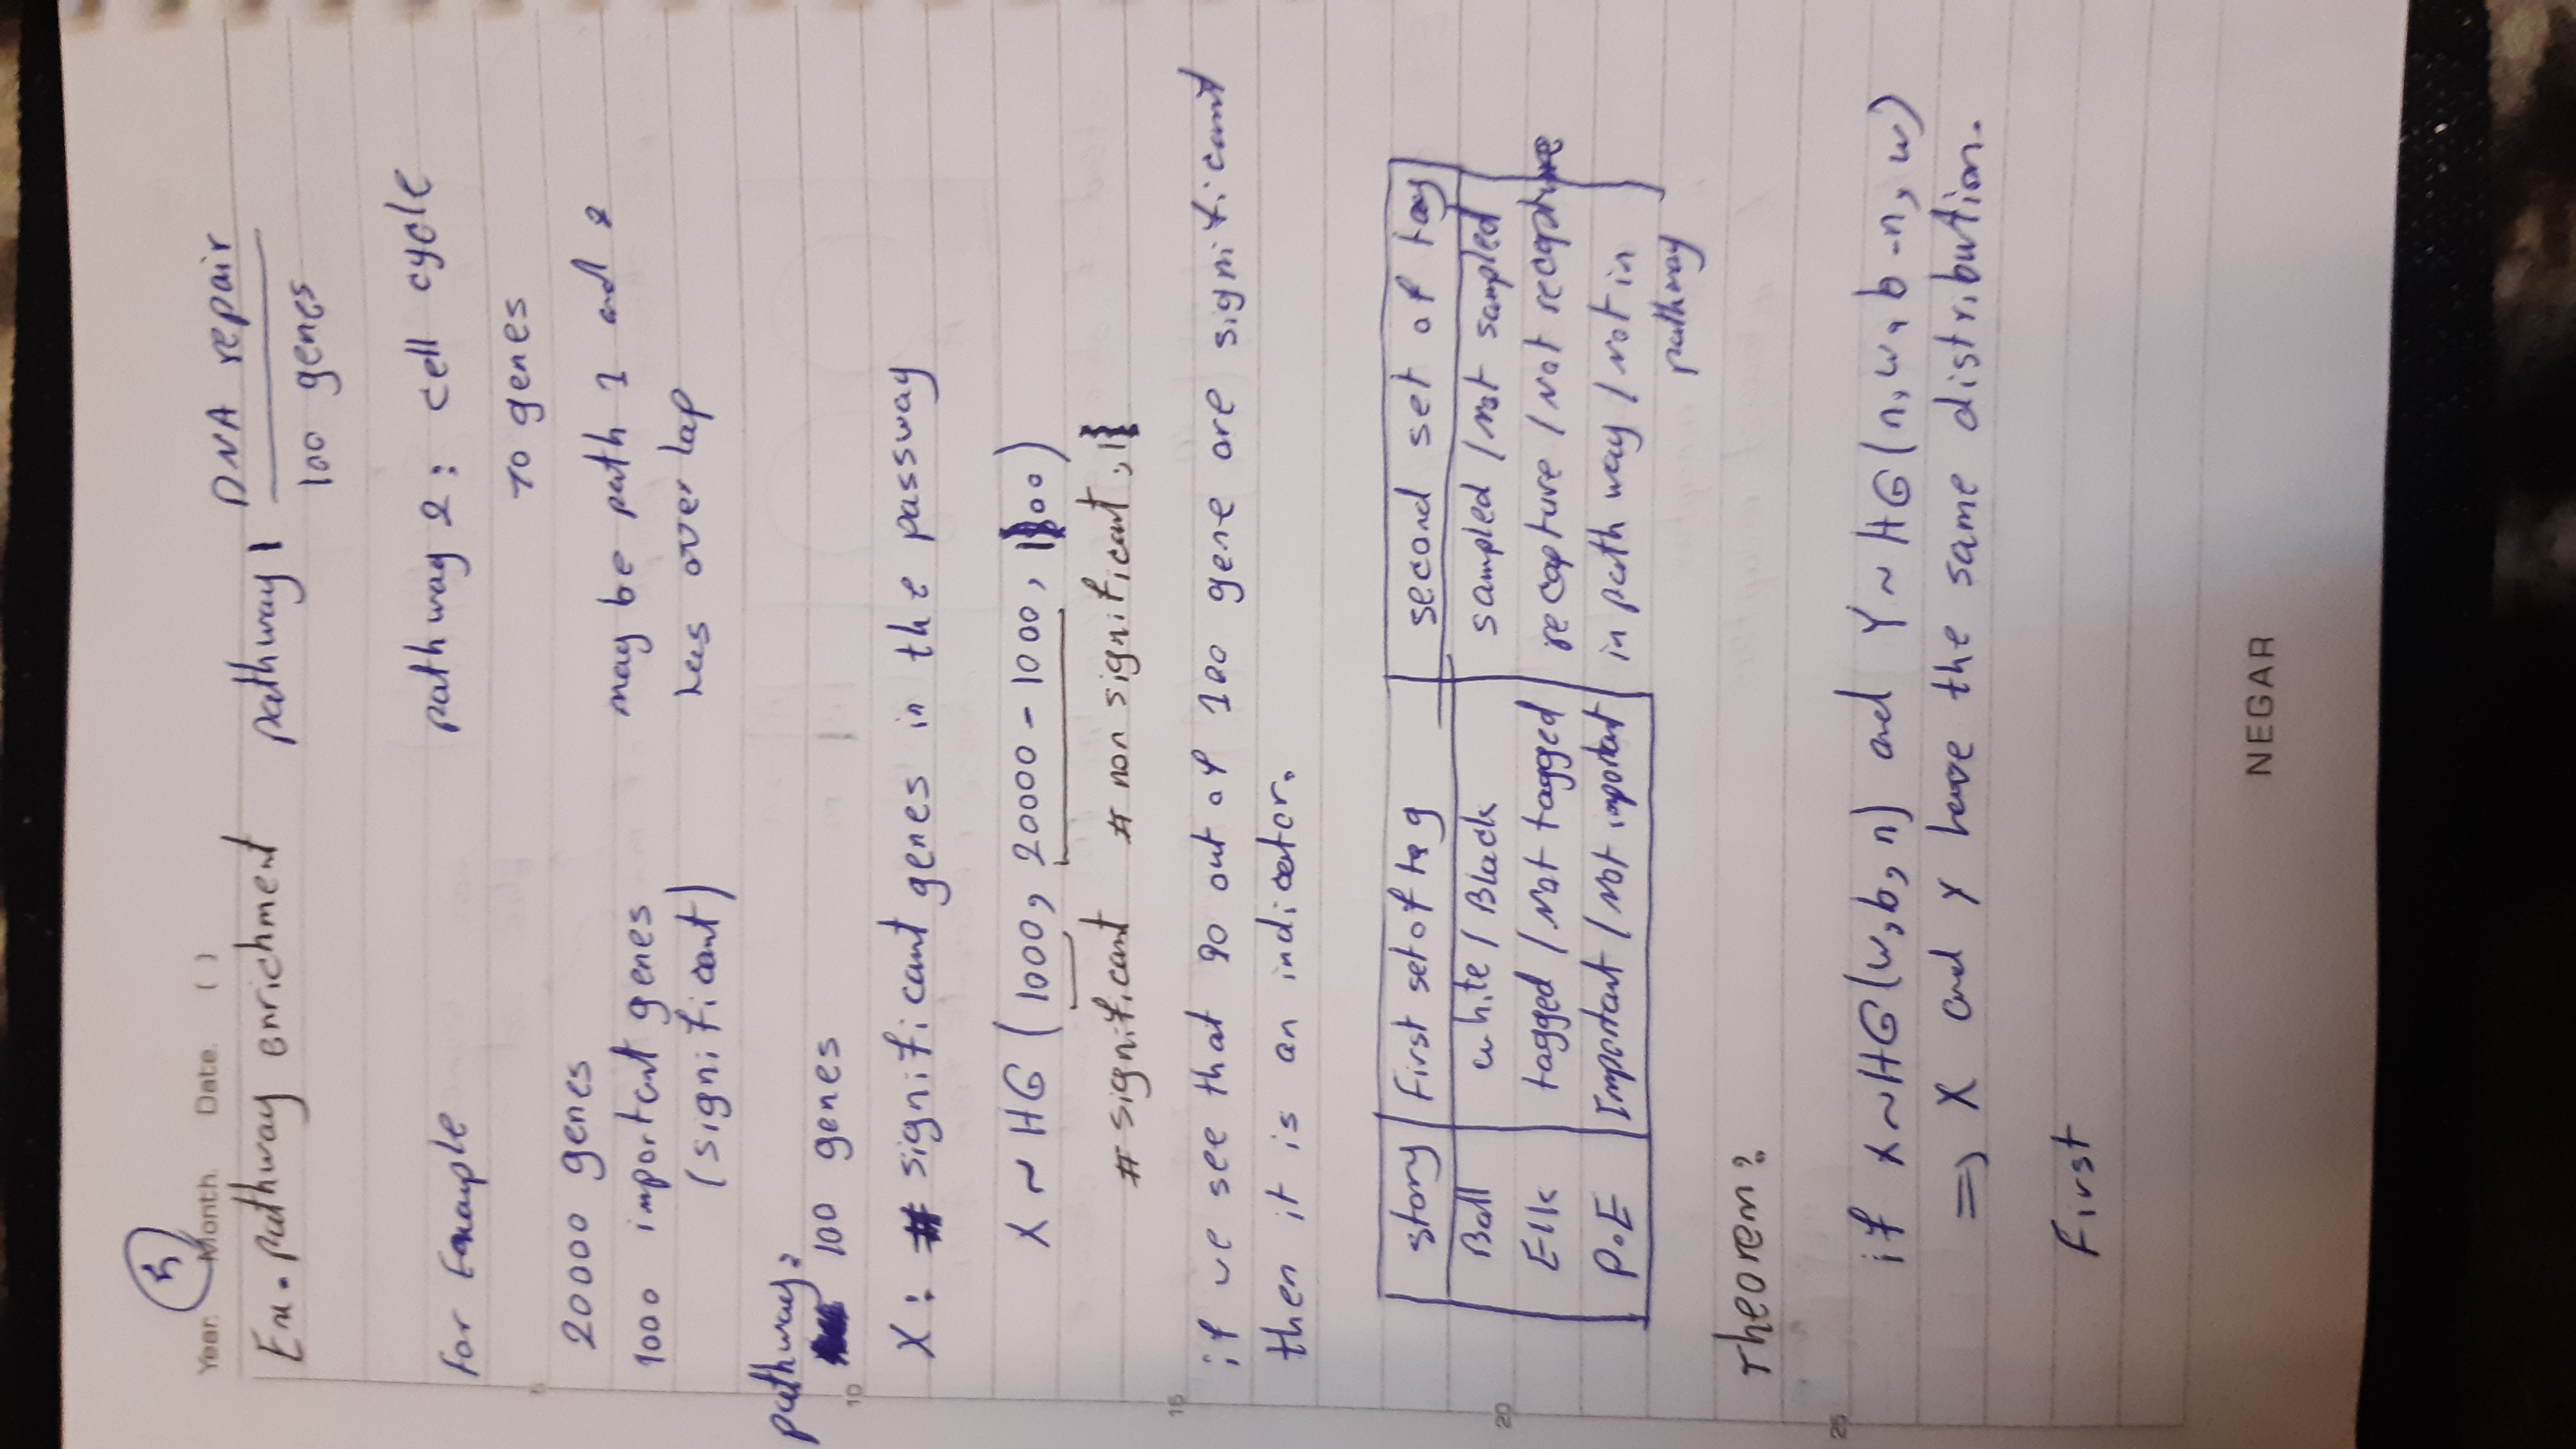 5
Year. Month. Date. ( )
Ex. Pathway enrichment Pathway 1 DNA repair
100 genes
for Example pathway 2: cell cycle
70 genes
20000 genes
1000 important genes may be path 1 and 2
(significant) has overlap
pathway:
100 genes
X: # significant genes in the passway
X ~ HG (1000, 20000 - 1000, 100)
# significant # non significant,
if we see that 90 out of 100 gene are significant
then it is an indicator.
story First set of tag second set of tag
Ball white / Black sampled / Not sampled
Elk tagged / Not tagged recapture / Not recapture
P.E Important / Not important in pathway / Not in
pathway
Theorem:
if X ~ HG (w, b, n) and Y ~ HG (n, w, b - n, w)
=> X and Y have the same distribution.
First
5
10
15
20
25
NEGAR